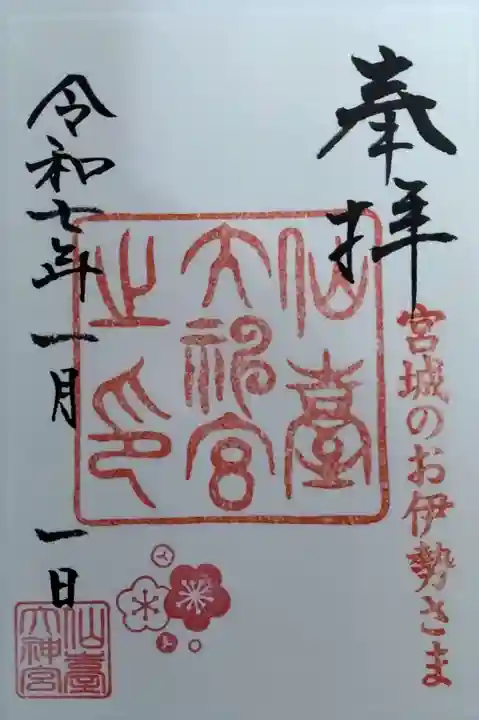 奉拝
宮城のお伊勢さま
仙臺
大神宮
之印
令和七年 一月 一日
仙臺
大神宮